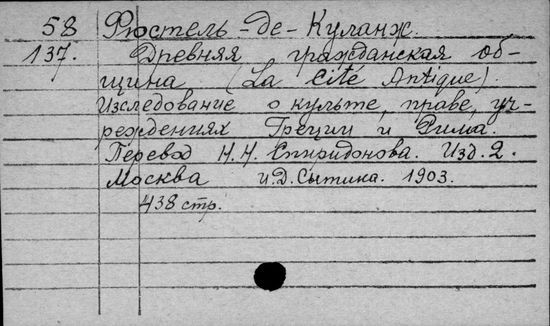 58 Фюстель-де-Куланж.
137. Древняя гражданская об-
щина (La Cité Antique).
Изследование о культе, праве, уч-
реждениях Греции и Рима.
Перевод Н.Н. Спиридонова. Изд. 2.
Москва и.Д. Сытина. 1903.
438 стр.